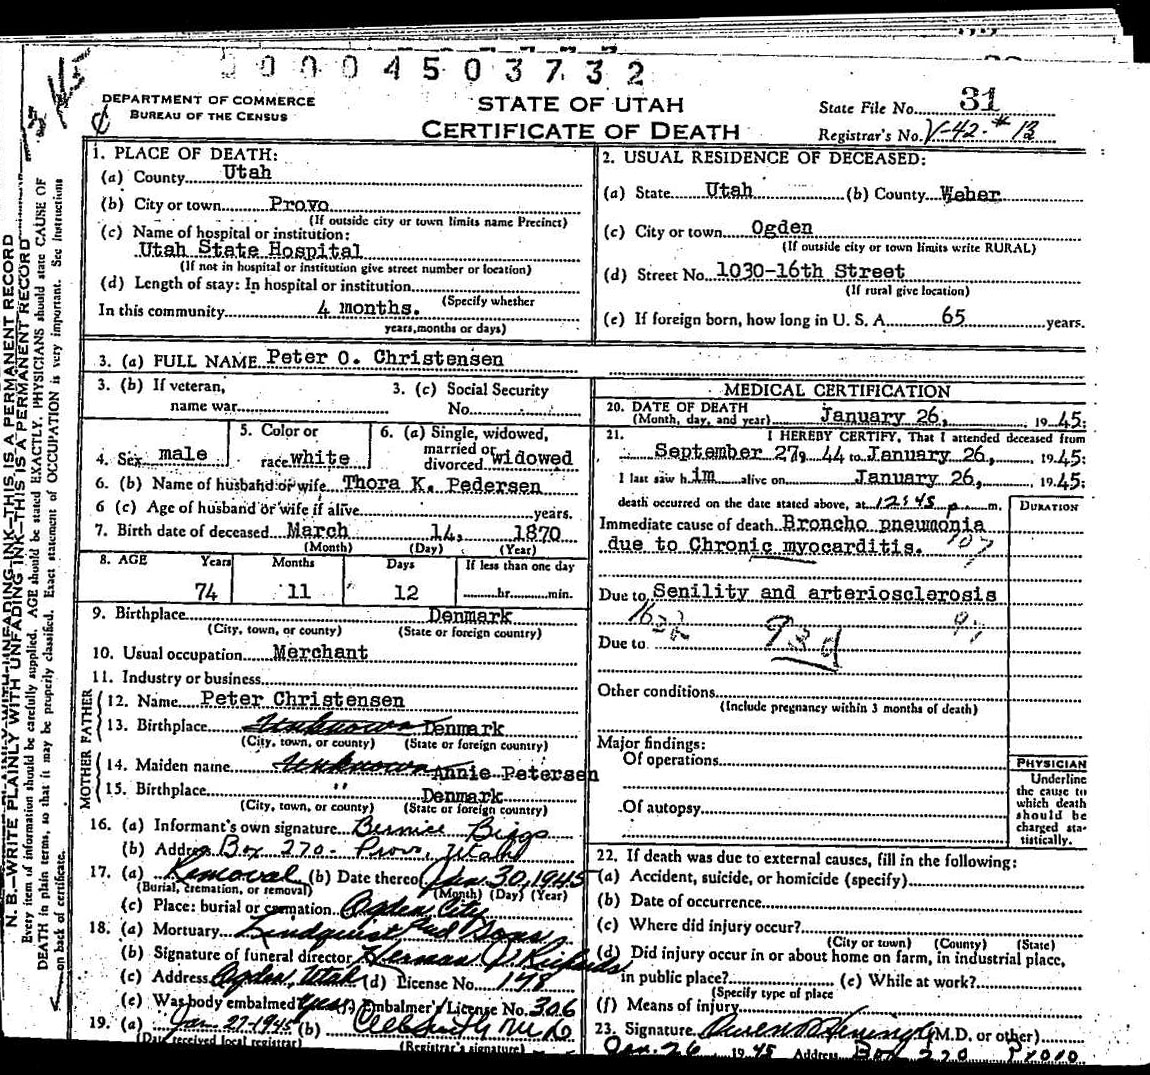 00004503732
DEPARTMENT OF COMMERCE
BUREAU OF THE CENSUS
STATE OF UTAH
CERTIFICATE OF DEATH
State File No. 31
Registrar's No. V-42-#13
N.B.—WRITE PLAINLY WITH UNFADING INK—THIS IS A PERMANENT RECORD
Every item of information should be carefully supplied. AGE should be stated EXACTLY. PHYSICIANS should state CAUSE OF
DEATH in plain terms, so that it may be properly classified. Exact statement of OCCUPATION is very important. See Instructions
on back of certificate.
1. PLACE OF DEATH:
(a) County Utah
(b) City or town Provo
(If outside city or town limits name Precinct)
(c) Name of hospital or institution:
Utah State Hospital
(If not in hospital or institution give street number or location)
(d) Length of stay: In hospital or institution
(Specify whether
In this community 4 months.
years, months or days)
2. USUAL RESIDENCE OF DECEASED:
(a) State Utah (b) County Weber
(c) City or town Ogden
(If outside city or town limits write RURAL)
(d) Street No. 1030-16th Street
(If rural give location)
(e) If foreign born, how long in U. S. A. 65 years.
3. (a) FULL NAME Peter O. Christensen
3. (b) If veteran, name war
3. (c) Social Security No.
4. Sex male
5. Color or race white
6. (a) Single, widowed, married or divorced widowed
6. (b) Name of husband or wife Thora K. Pedersen
6 (c) Age of husband or wife if alive years.
7. Birth date of deceased March 14, 1870
(Month) (Day) (Year)
8. AGE Years Months Days If less than one day
74 11 12 hr. min.
9. Birthplace Denmark
(City, town, or county) (State or foreign country)
10. Usual occupation Merchant
11. Industry or business
FATHER
12. Name Peter Christensen
13. Birthplace Unknown Denmark
(City, town, or county) (State or foreign country)
MOTHER
14. Maiden name Unknown Annie Petersen
15. Birthplace " Denmark
(City, town, or county) (State or foreign country)
16. (a) Informant's own signature Bernice Biggs
(b) Address Box 270- Provo, Utah
17. (a) Removal (b) Date thereof Jan. 30, 1945
(Burial, cremation, or removal) (Month) (Day) (Year)
(c) Place: burial or cremation Ogden City
18. (a) Mortuary Lindquist and Sons
(b) Signature of funeral director Herman J.
(c) Address Ogden, Utah (d) License No. 178
(e) Was body embalmed yes (f) Embalmer's License No. 306
19. (a) Jan 27-1945 (b)
(Date received local registrar) (Registrar's signature)
MEDICAL CERTIFICATION
20. DATE OF DEATH
(Month, day, and year) January 26, 1945;
21. I HEREBY CERTIFY, That I attended deceased from
September 27, 44 to January 26, 1945;
I last saw him alive on January 26, 1945;
death occurred on the date stated above, at 12:45 p m.
DURATION
Immediate cause of death Broncho pneumonia
due to Chronic myocarditis. 107
Due to Senility and arteriosclerosis
93d 97
Due to
Other conditions
(Include pregnancy within 3 months of death)
Major findings:
Of operations
Of autopsy
PHYSICIAN
Underline
the cause to
which death
should be
charged sta-
tistically.
22. If death was due to external causes, fill in the following:
(a) Accident, suicide, or homicide (specify)
(b) Date of occurrence
(c) Where did injury occur?
(City or town) (County) (State)
(d) Did injury occur in or about home on farm, in industrial place,
in public place? (e) While at work?
(Specify type of place
(f) Means of injury
23. Signature (M.D. or other)
Jan. 26 1945 Address Box 270 Provo